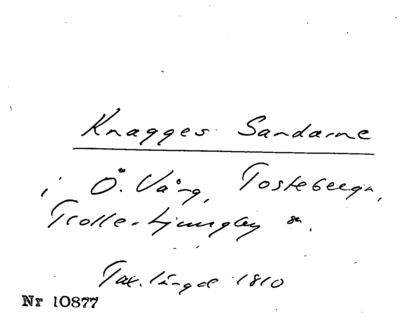 Knagges Sandarne
i Ö. Vång, Tosteberga,
Trolle-Ljungby sn.
Tax. längd 1810
Nr 10877